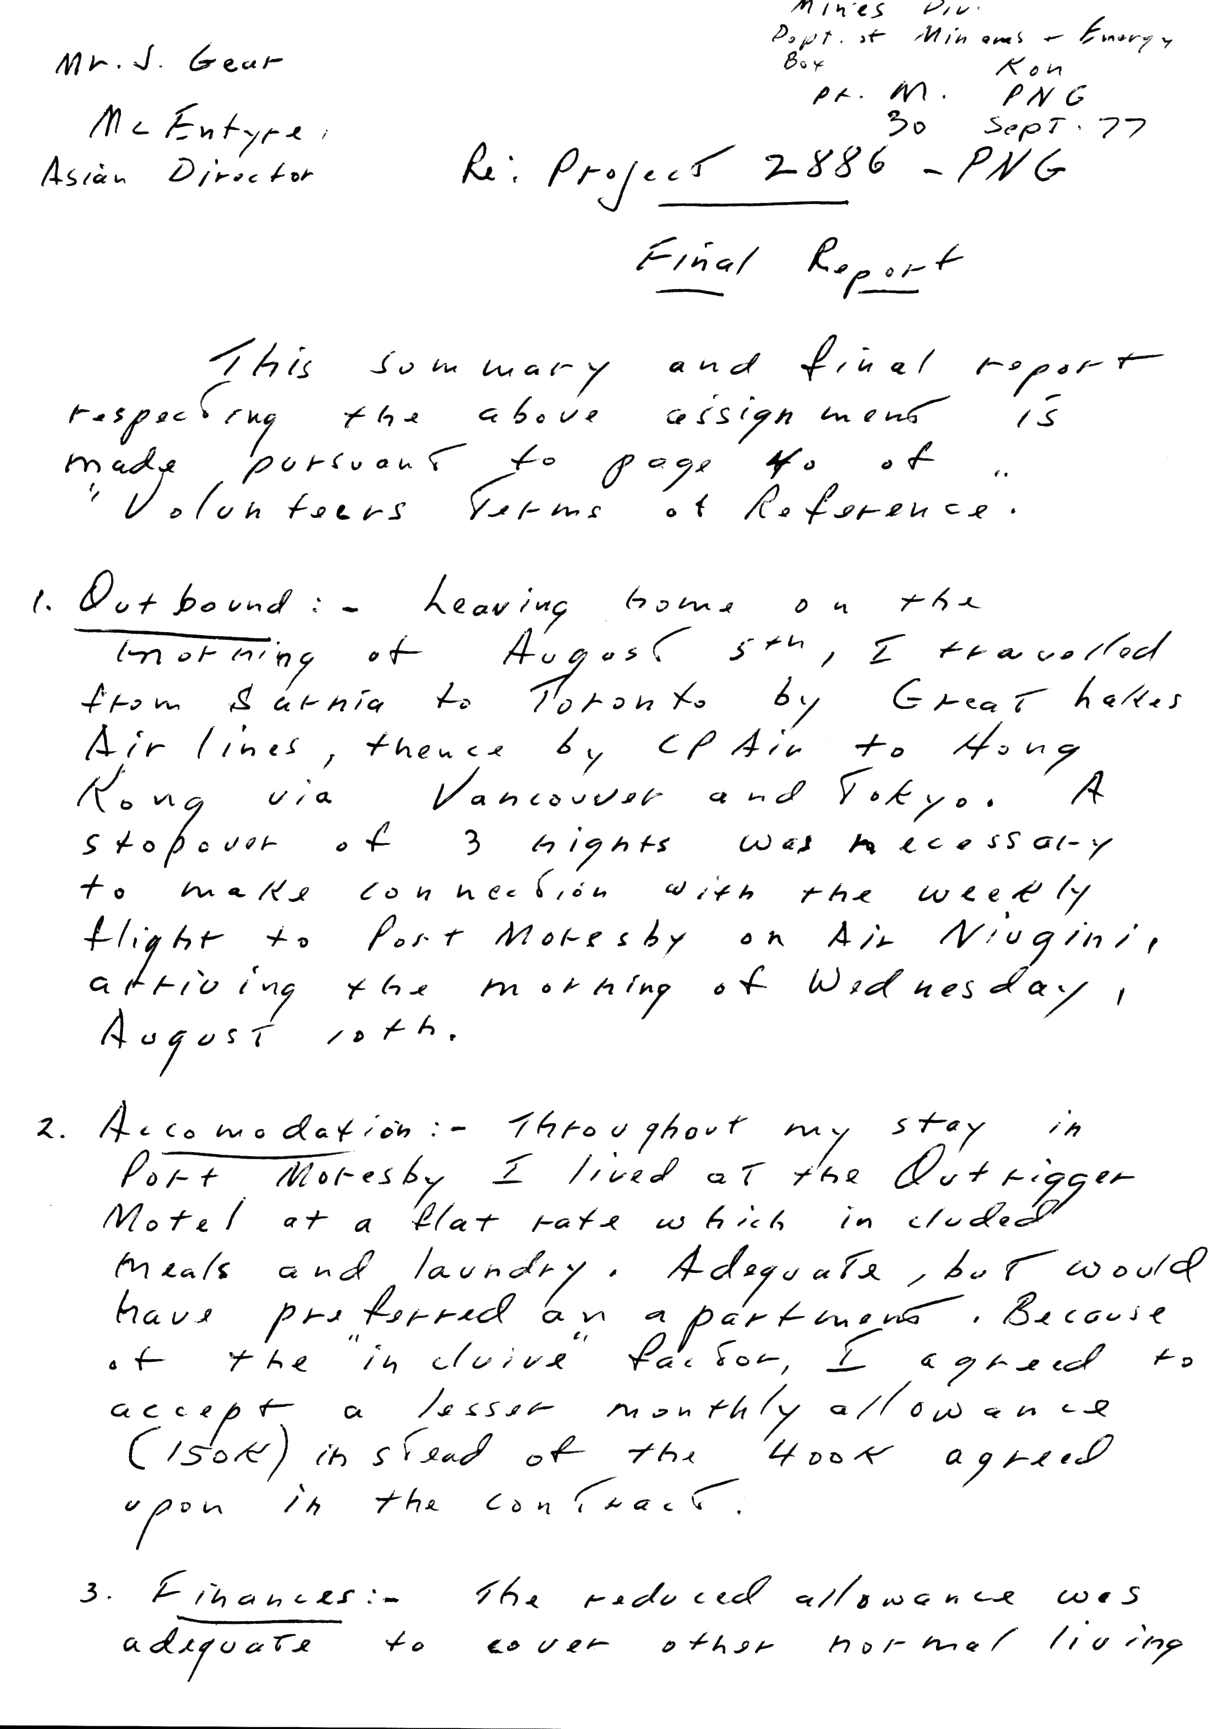 Mines Div.
Dept. of Minerals + Energy
Box Kon
Pt. M. PNG
30 Sept. 77
Mr. J. Gear
McEntyre,
Asian Director
Re: Project 2886 - PNG
Final Report
This summary and final report
respecting the above assignment is
made pursuant to page 40 of
"Volunteers Terms of Reference".
1. Outbound:- Leaving home on the
morning of August 5th, I travelled
from Sarnia to Toronto by Great Lakes
Airlines, thence by CP Air to Hong
Kong via Vancouver and Tokyo. A
stopover of 3 nights was necessary
to make connection with the weekly
flight to Port Moresby on Air Niugini,
arriving the morning of Wednesday,
August 10th.
2. Accomodation:- Throughout my stay in
Port Moresby I lived at the Outrigger
Motel at a flat rate which included
meals and laundry. Adequate, but would
have preferred an apartment. Because
of the "incluive" factor, I agreed to
accept a lesser monthly allowance
(150K) instead of the 400K agreed
upon in the contract.
3. Finances:- The reduced allowance was
adequate to cover other normal living